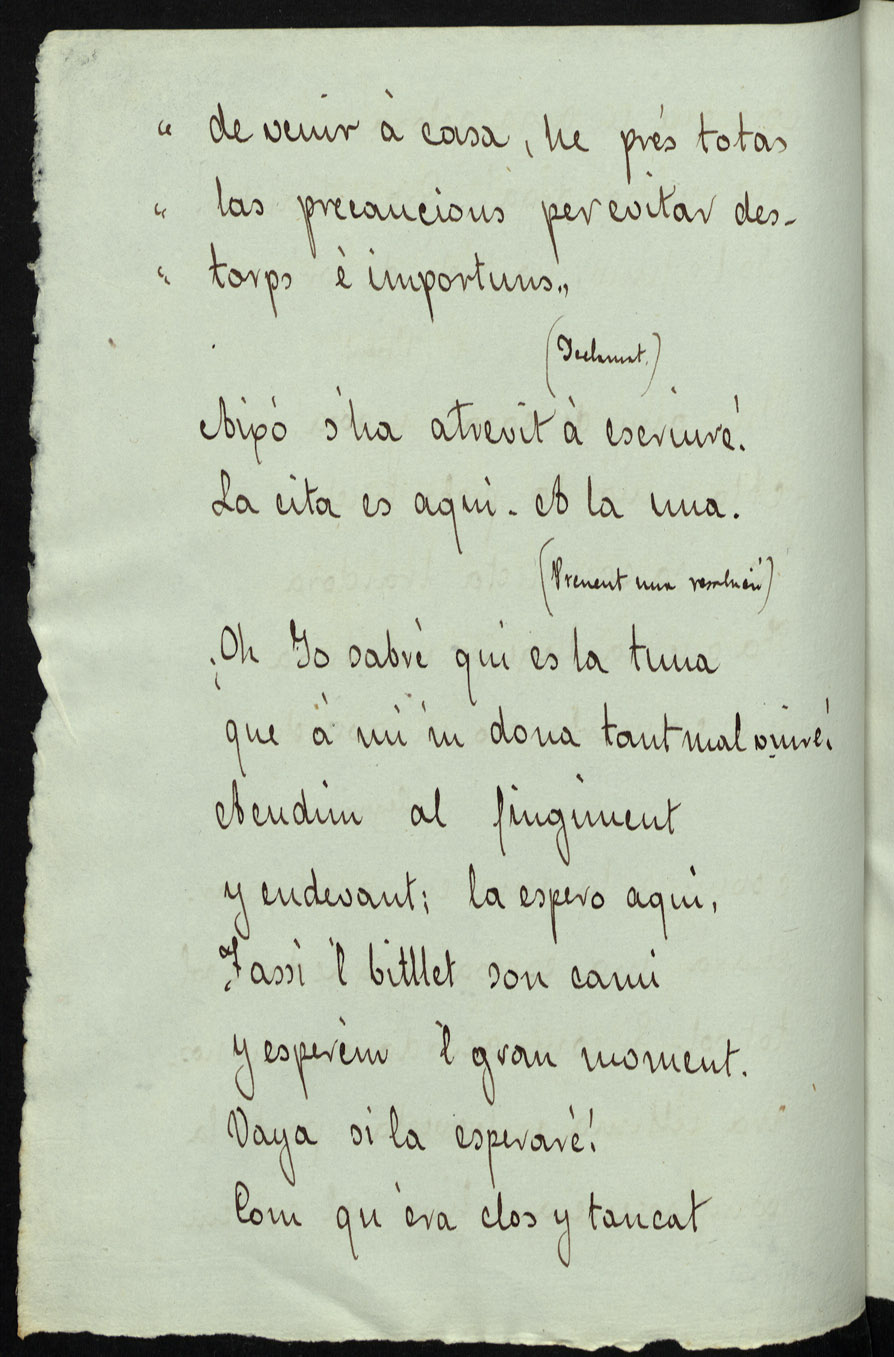 “ de venir à casa, he prés totas
“ las precaucions per evitar des-
“ torps è importuns.„
(Declamat.)
Aixó s'ha atrevit à escriuré!
La cita es aquí. A la una.
(Prenent una resolució)
¡Oh Jo sabré qui es la tuna
que á mi 'm dona tant mal viuré!
Acudim al fingiment
y endevant; la espero aquí,
Fassi 'l bitllet son camí
y esperèm 'l gran moment.
Vaya si la esperaré!
Com qu'era clos y tancat